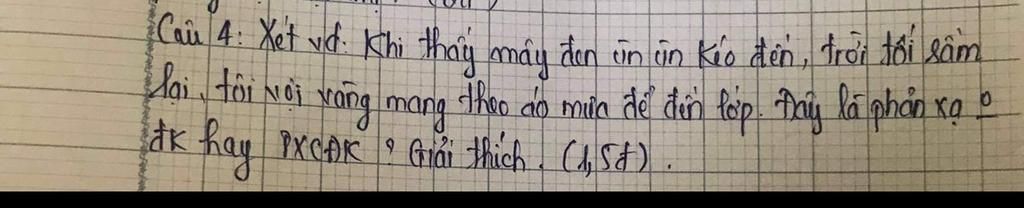 Câu 4: Xét vd: Khi thấy mây đen ùn ùn kéo đến, trời tối sầm
lại, tôi vội vàng mang theo áo mưa để đến lớp. Đây là phản xạ o
đk hay PXCĐK ? Giải thích. (1,5đ).